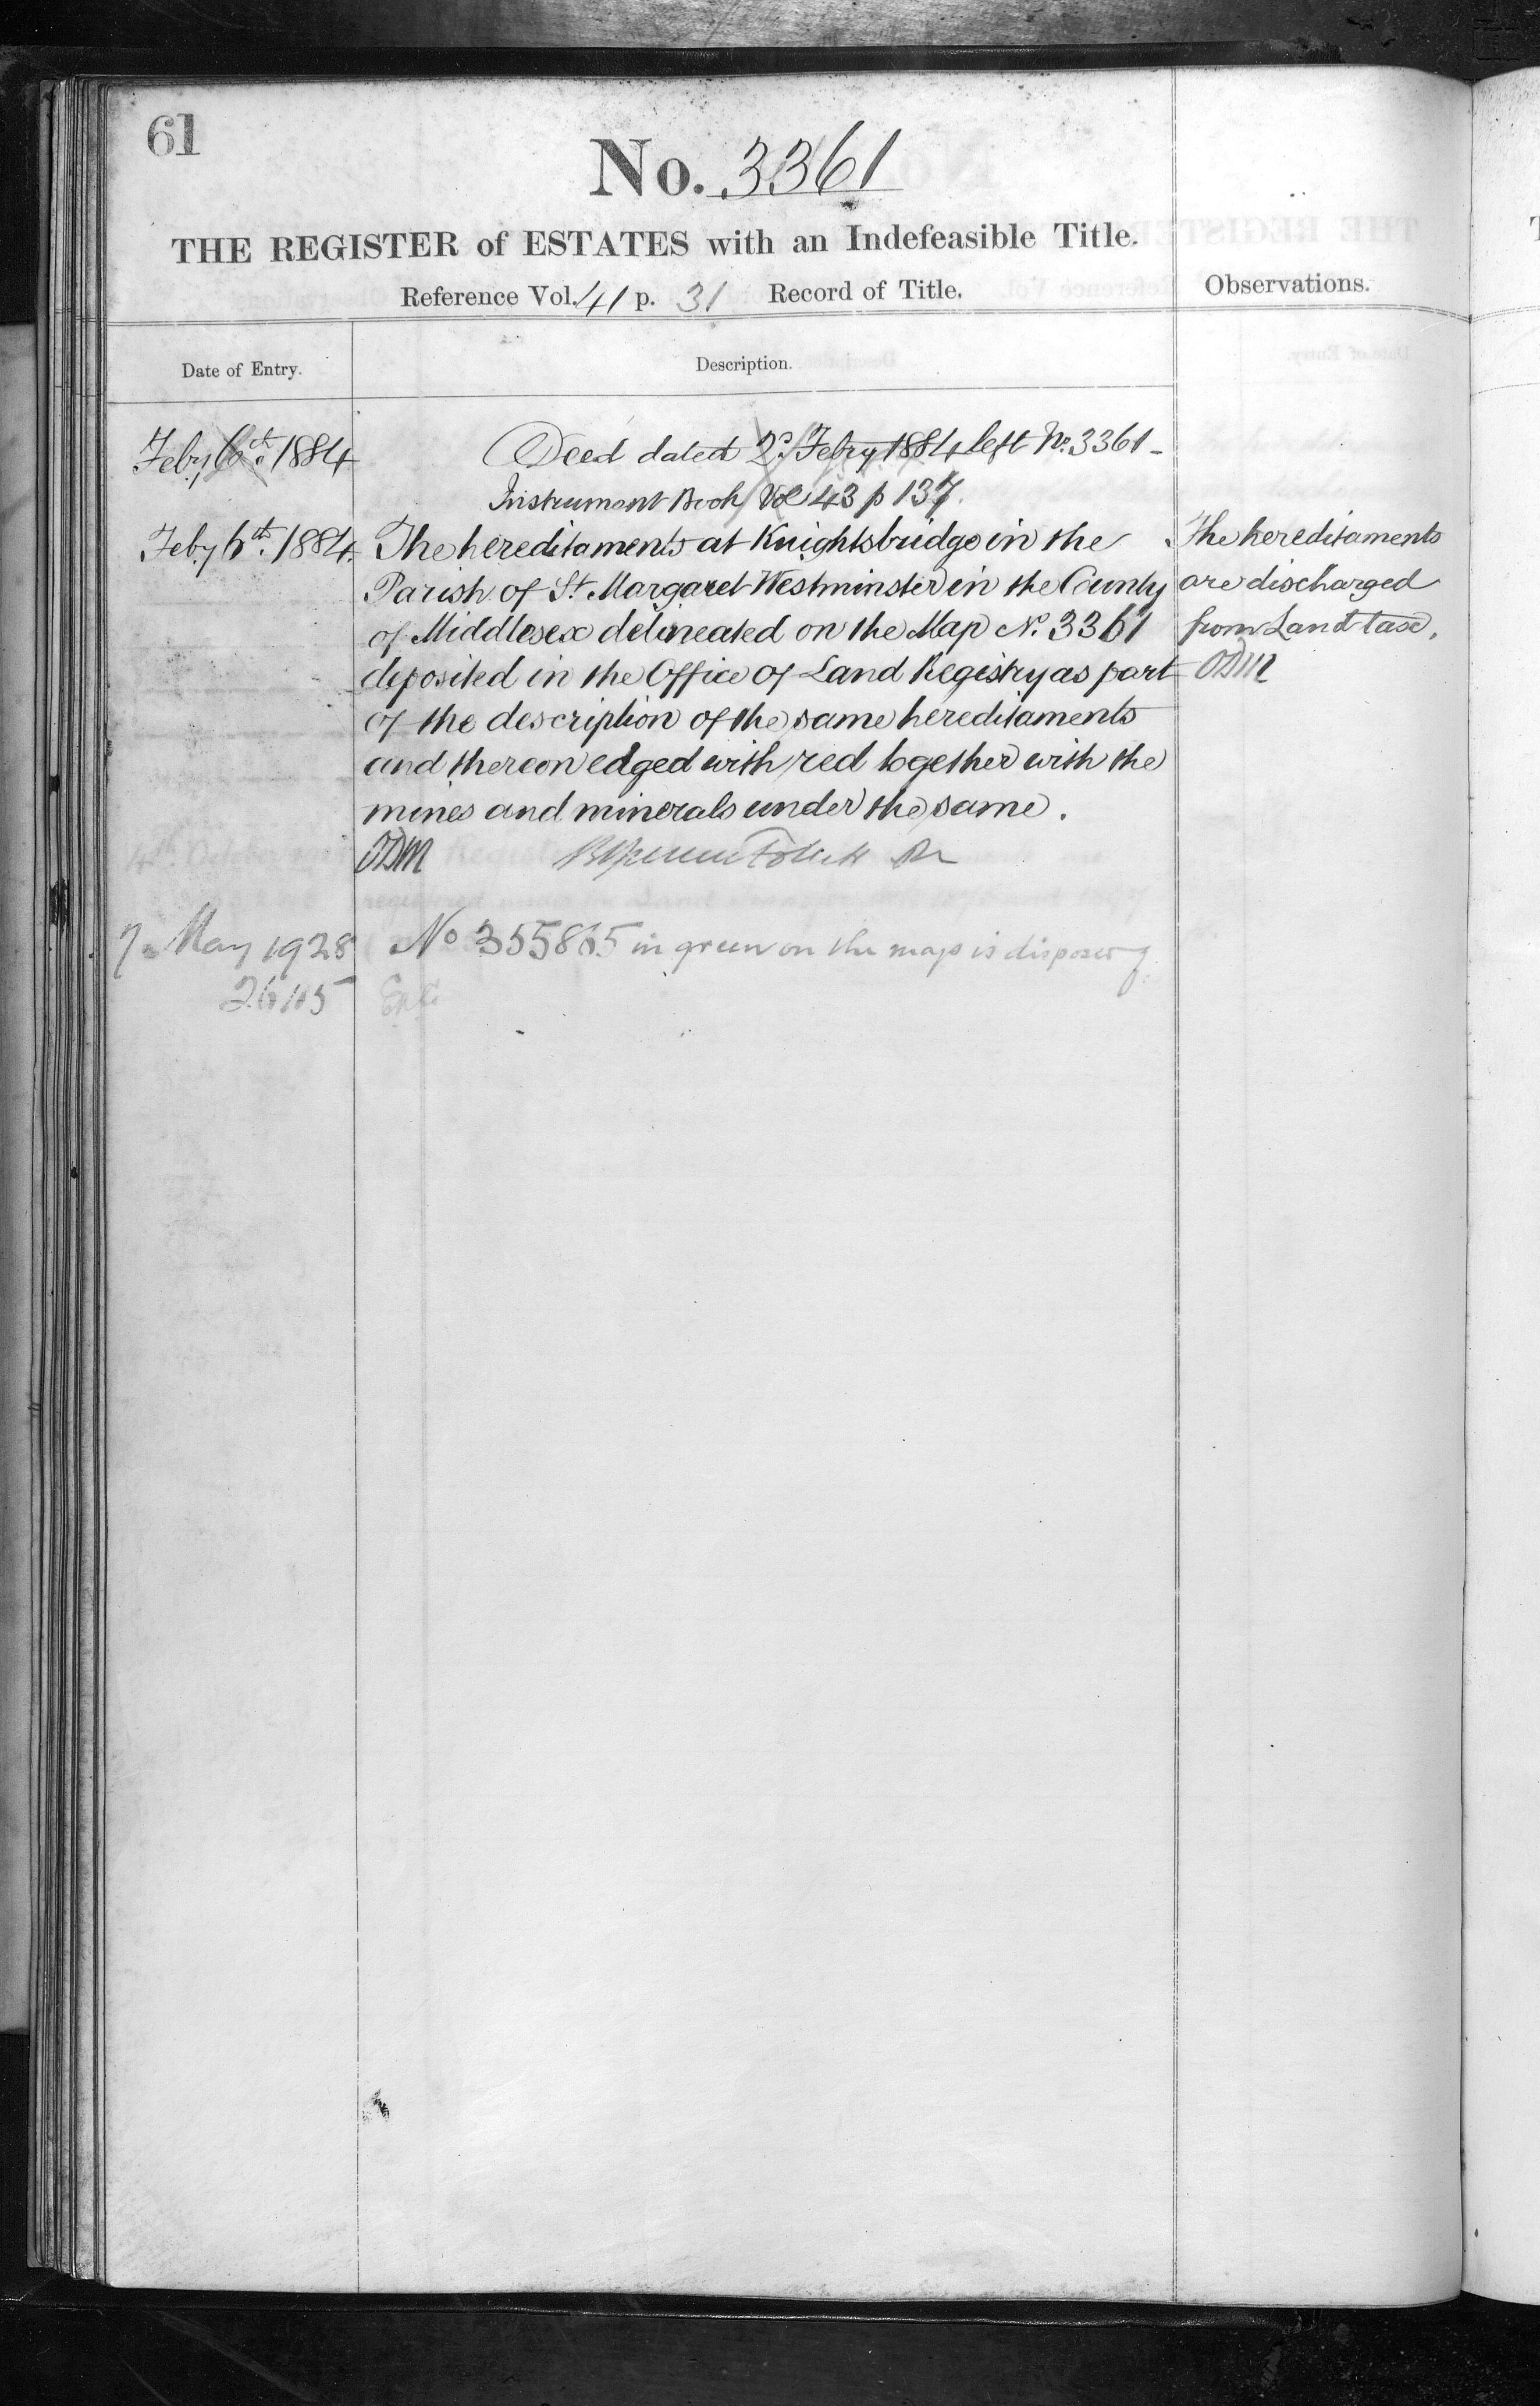 61
No. 3361
THE REGISTER of ESTATES with an Indefeasible Title.
Reference Vol. 41 p. 31 Record of Title.
Observations.
Date of Entry.
Description.
Feby 6th 1884
Deed dated 2d Febry 1884 left No. 3361 -
Instrument Book Vol 43 p 137.
Feby 6th 1884.
The hereditaments at Knightsbridge in the
Parish of St. Margaret Westminster in the County
of Middlesex delineated on the Map No. 3361
deposited in the Office of Land Registry as part
of the description of the same hereditaments
and thereon edged with red together with the
mines and minerals under the same.
ODM
The hereditaments
are discharged
from Land tax.
ODM
7 May 1928
No 355865 in green on the map is disposed of.